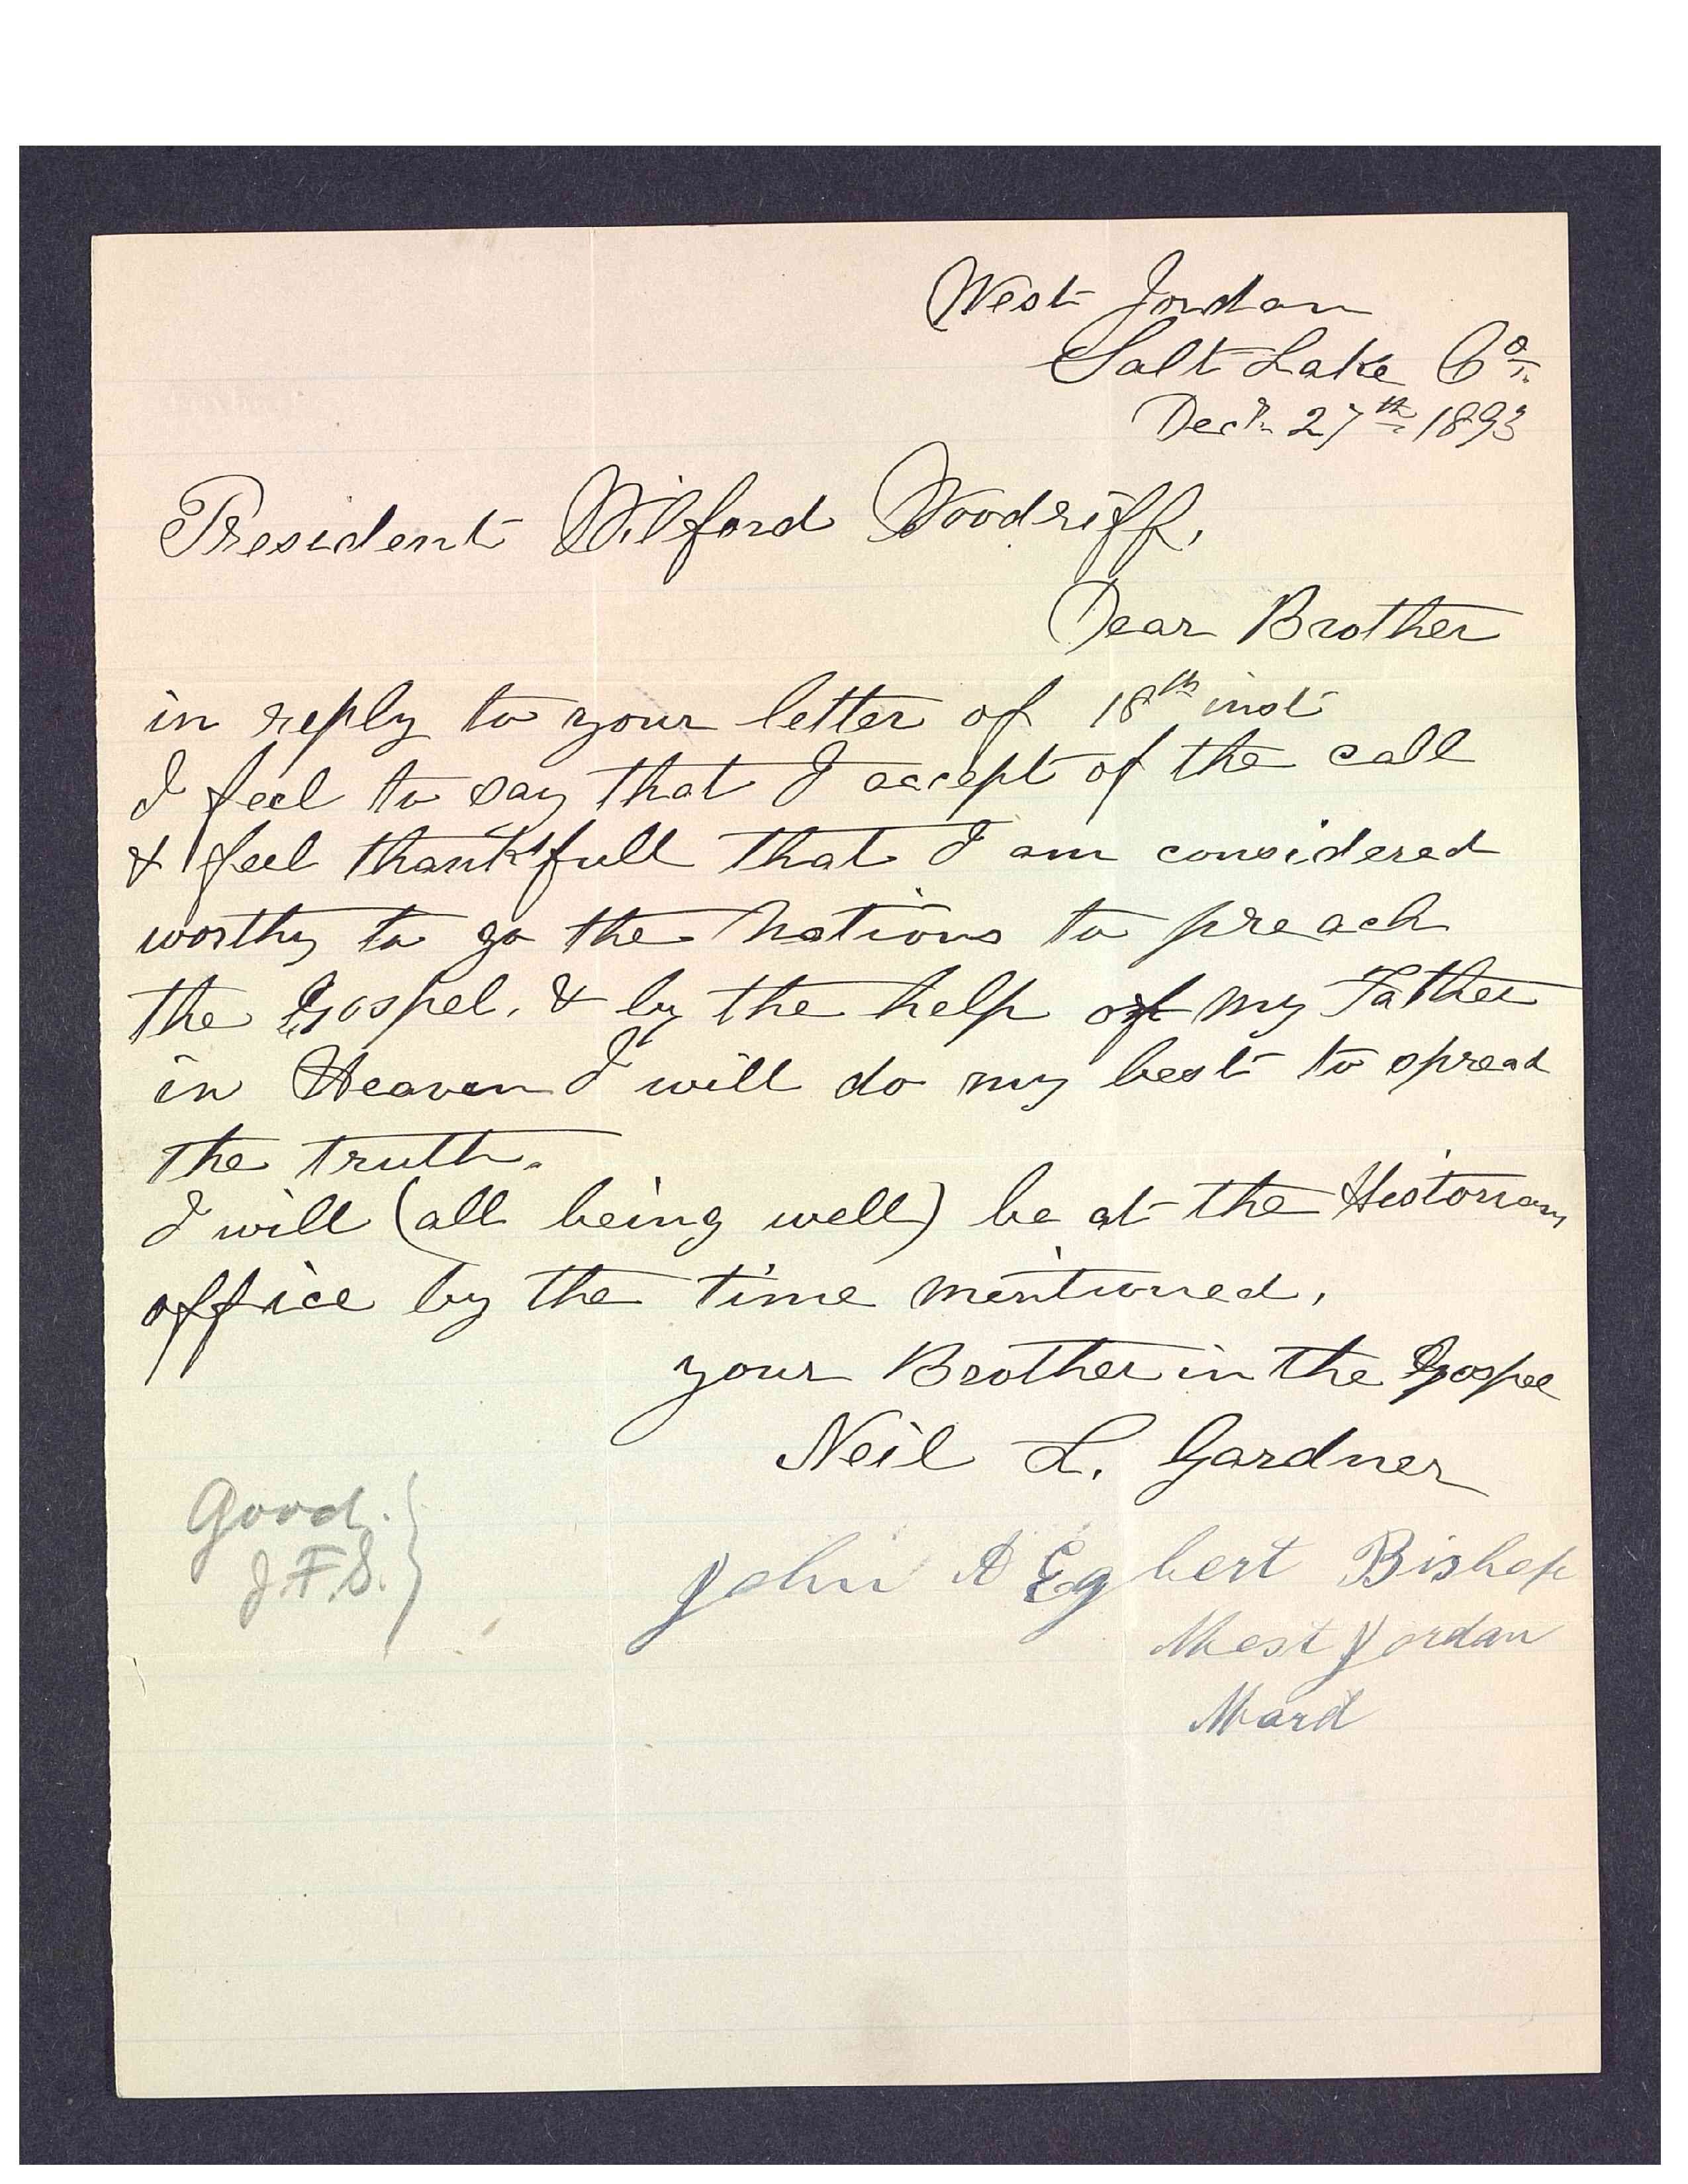 West Jordan
Salt Lake Co.
Decr. 27th 1893
President Wilford Woodriff,
Dear Brother
in reply to your letter of 18th inst
I feel to say that I accept of the call
& feel thankfull that I am considered
worthy to go the Nations to preach
the Gospel, & by the help of my Father
in Heaven I will do my best to spread
the truth.
I will (all being well) be at the Historians
office by the time mentioned,
your Brother in the Gospel
Neil L. Gardner
Good.
J.F.S.
John A Egbert Bishop
West Jordan
Ward